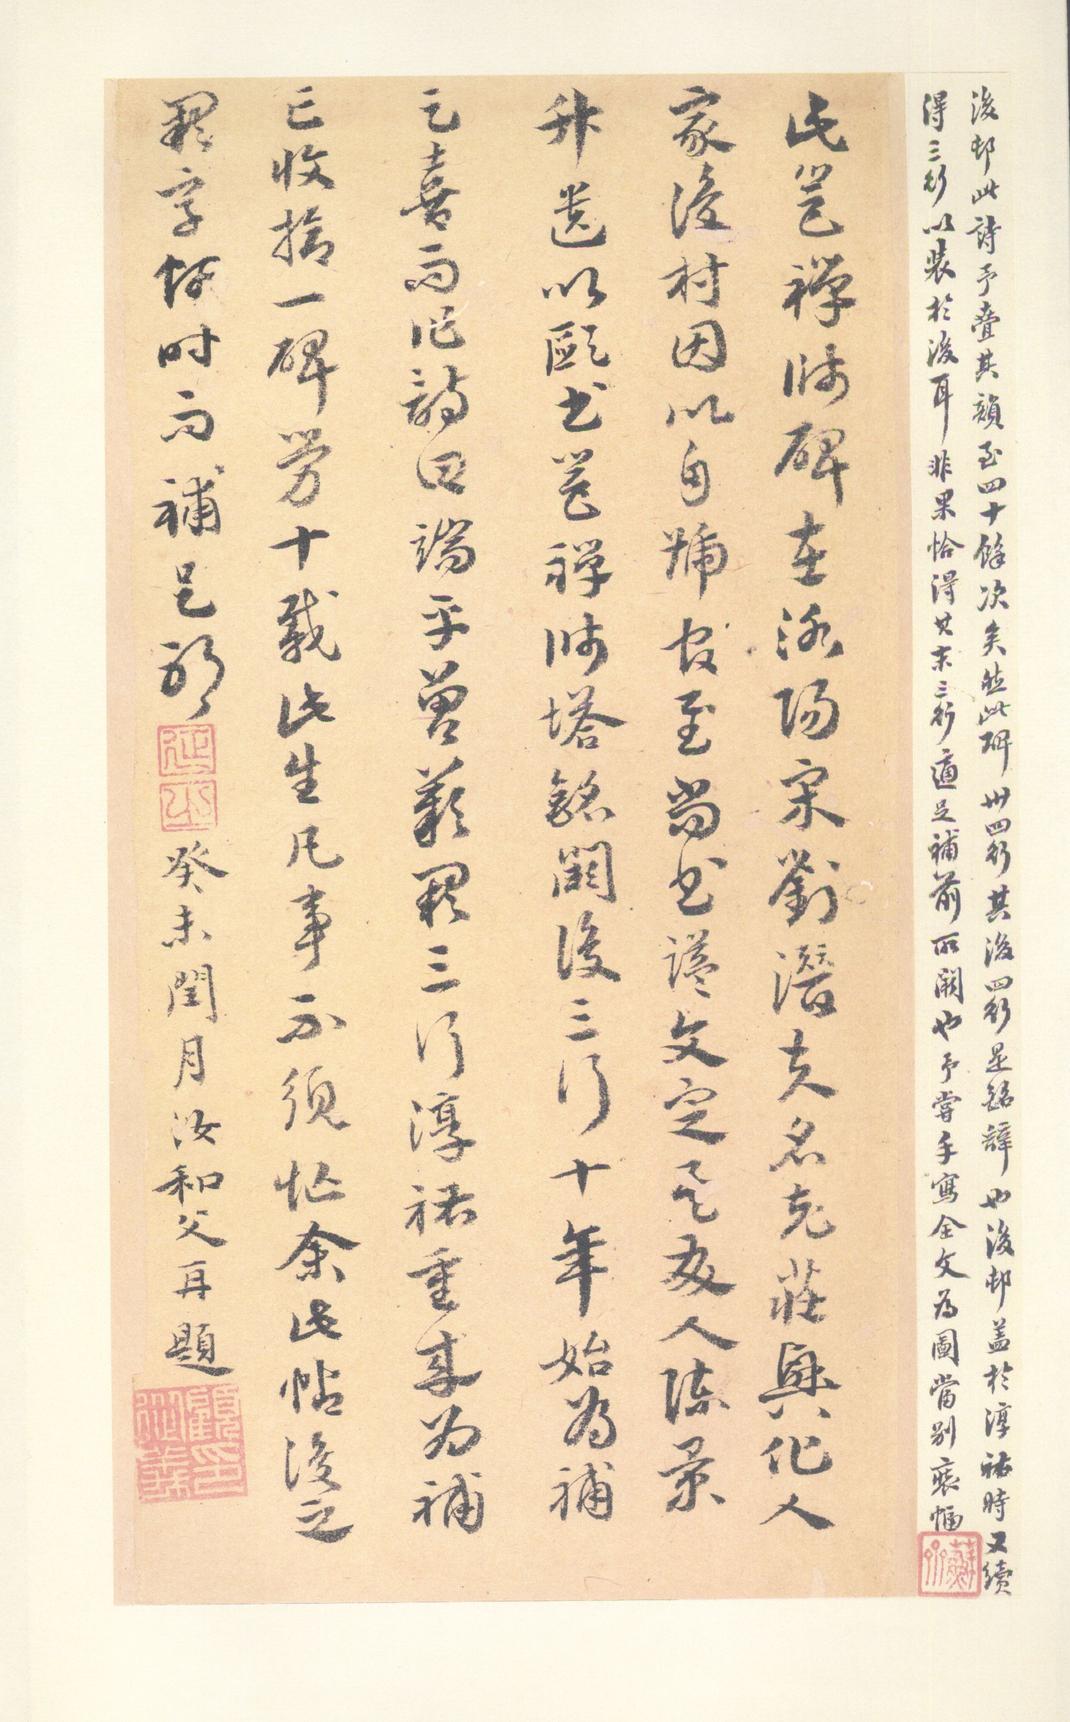 後邨此詩予疊其韻至四十餘次矣然此碑卅四行其後四行是銘辭也後邨蓋於淳祐時又續
得三行以裝於後耳非果恰得其末三行適足補前所闕也予嘗手寫全文為圖當別裝幅
此邕禪師碑在洛陽宋劉潛夫名克莊興化人
家後村因以自號官至尚書謚文定是友人陳景
升送以歐書邕禪師塔銘闕後三行十年始為補
之喜而作詩曰端平曾歎闕三行淳祐重來為補
亡收拾一碑勞十載此生凡事不須忙余此帖後之
闕字何時而補足耶
癸未閏月汝和父再題
蘇
顧
印